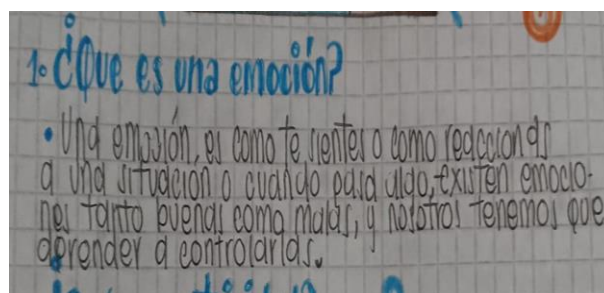 1. ¿Que es una emoción?
• Una emoción, es como te sientes o como reaccionas
a una situacion o cuando pasa algo, existen emocio-
nes tanto buenas como malas, y nosotros tenemos que
aprender a controlarlas.